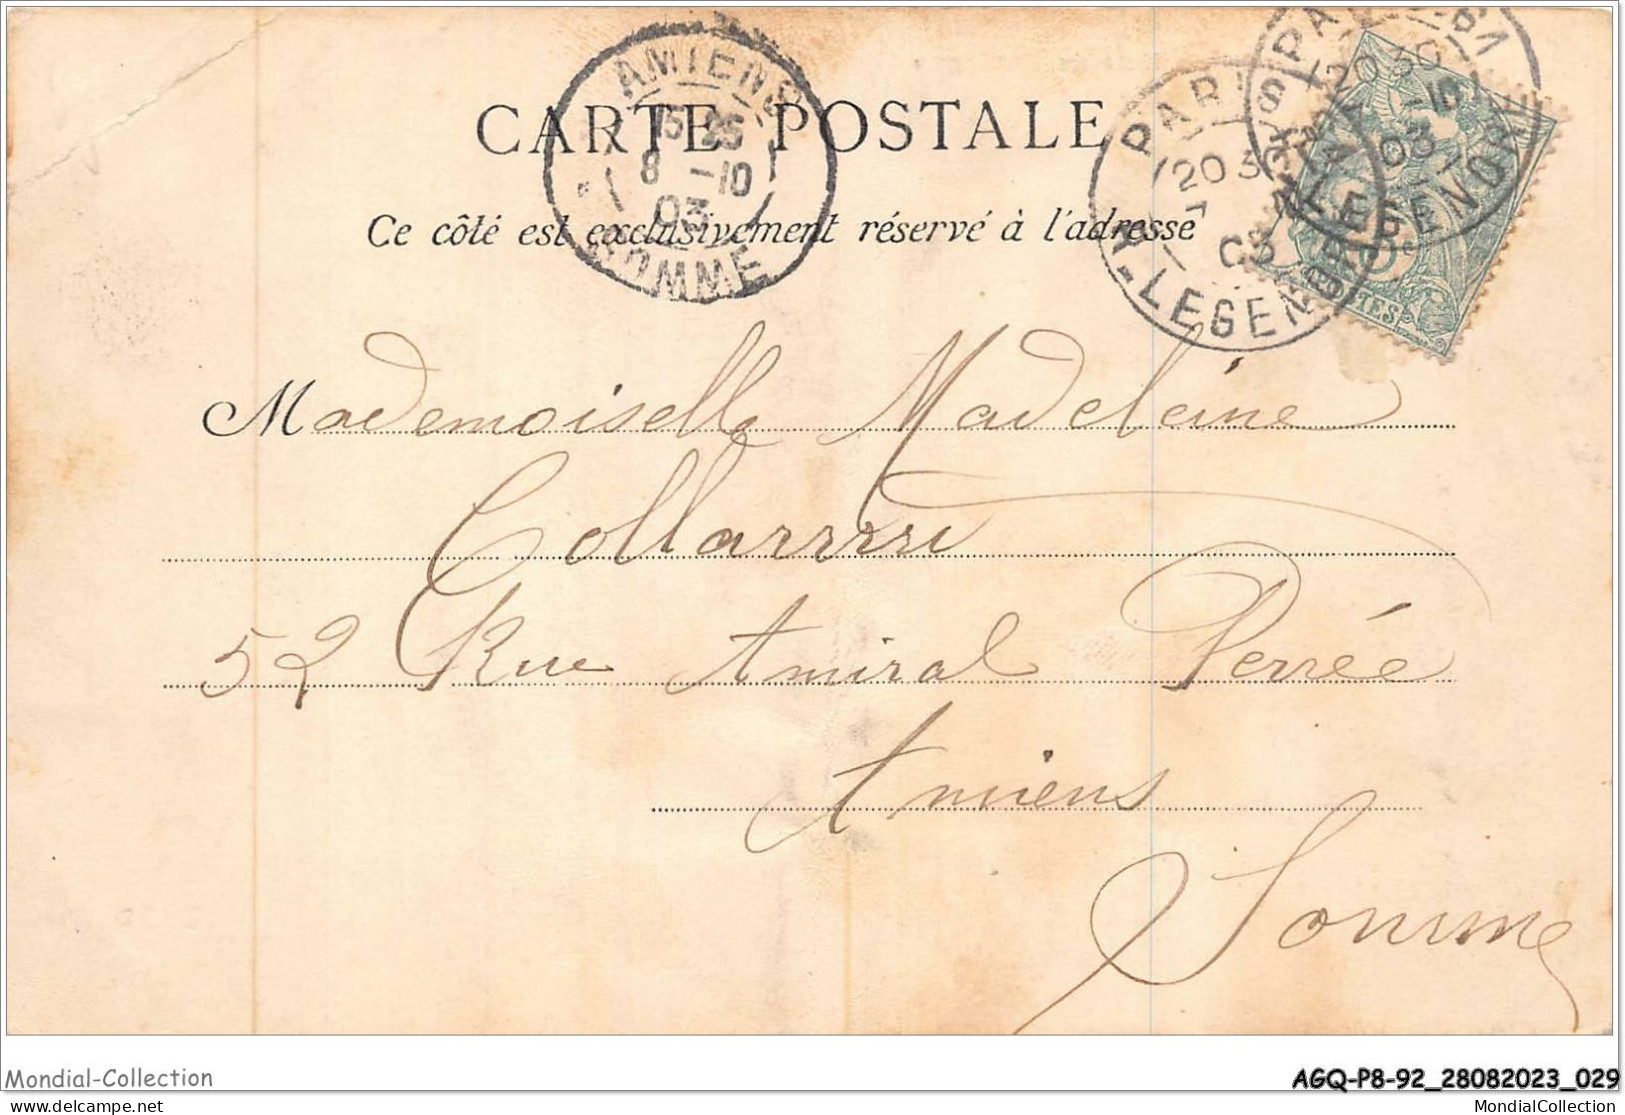 AMIENS
15 35
8 -10
03
SOMME
PARIS
20 30
7
03
R. LEGENDRE
PARIS
20 30
-10
03
R. LEGENDRE
CARTE POSTALE
Ce côté est exclusivement réservé à l'adresse
Mademoiselle Madeleine
52 Rue Amiral Perrée
Amiens
Somme
Mondial-Collection
AGQ-P8-92_28082023_029
www.delcampe.net
MondialCollection